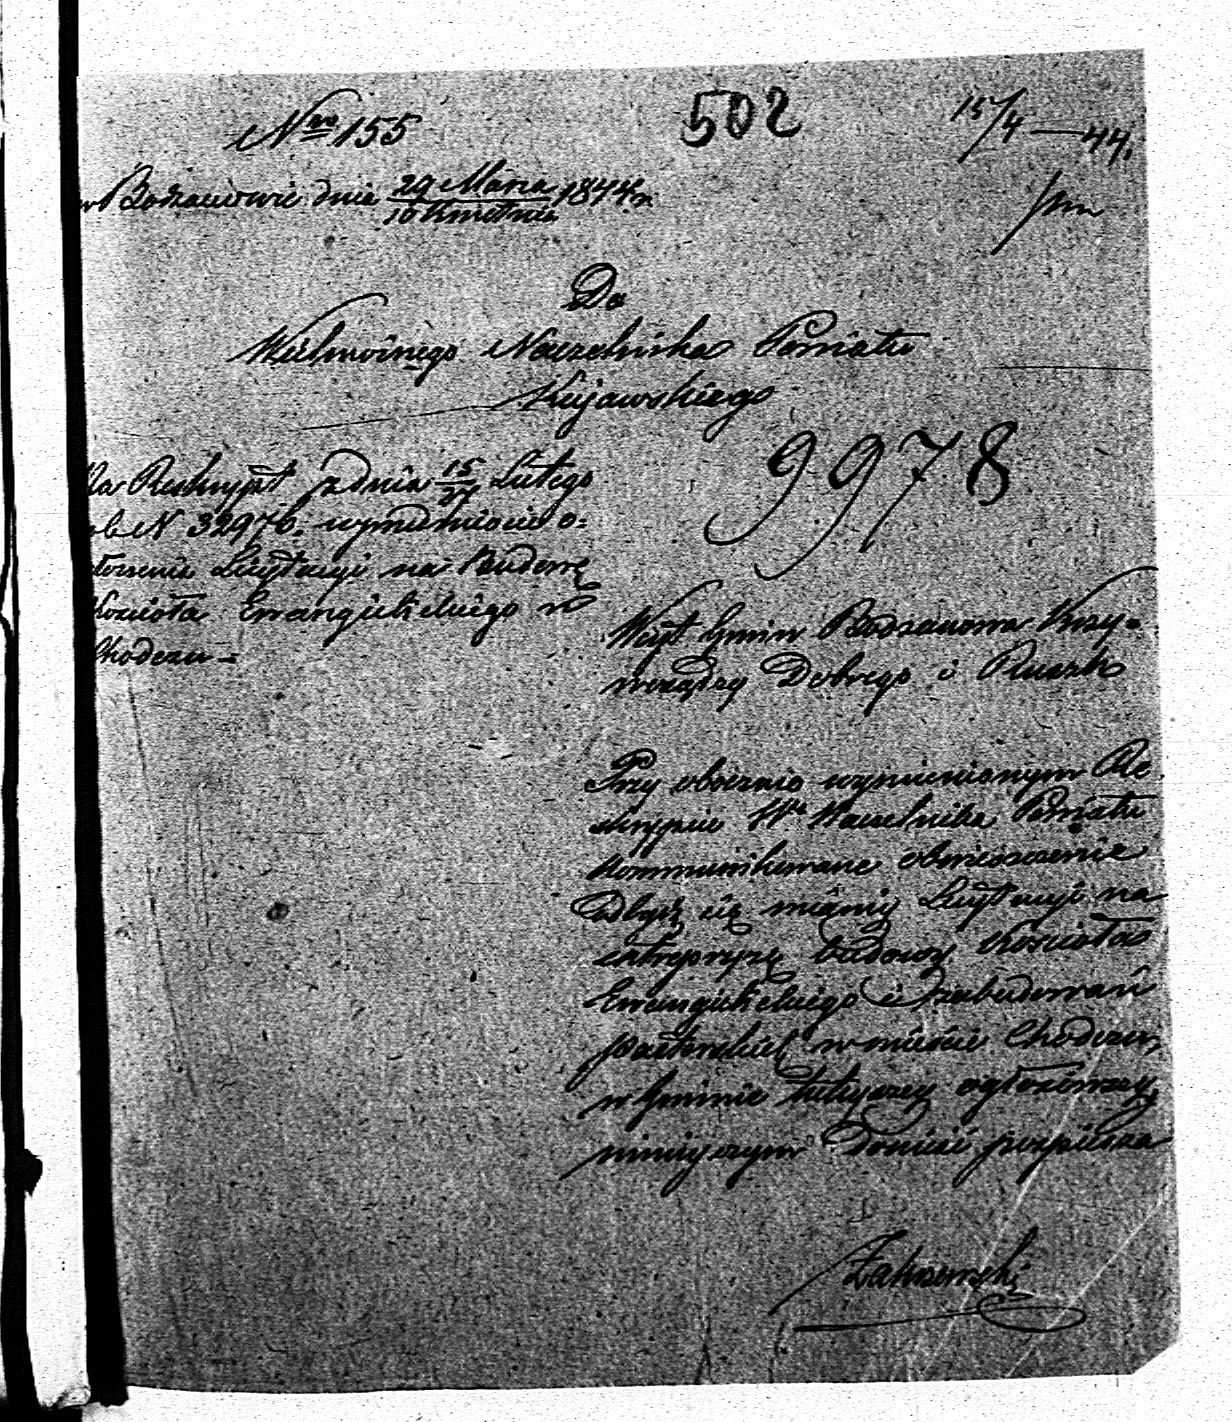 Nro 155
502
15/4 — 44.
w Bodzanowie dnia 29 Marca / 10 Kwietnia 1844 r.
Do
Wielmożnego Naczelnika Powiatu
Kujawskiego
9978
Na Reskrypt z dnia 15/27 Lutego
ob N 32976. względnie o=
głoszenia Licytacyi na Budowę
Kościoła Ewangielickiego w
Chodczu —
Wójt Gmin Bodzanowa Krzy=
Dobrego i
Przy obocznie wymienionym Re
skrypcie Wo Naczelnika Powiatu
kommunikowane obwieszczenie
odbyć się mianej Licytacyi na
entrepryzę budowy Kościoła
Ewangielickiego i zabudowań
pastorskich w mieście Chodczu,
w Gminie tutejszey ogłosiwszy,
niniejszym donieść pospiesza